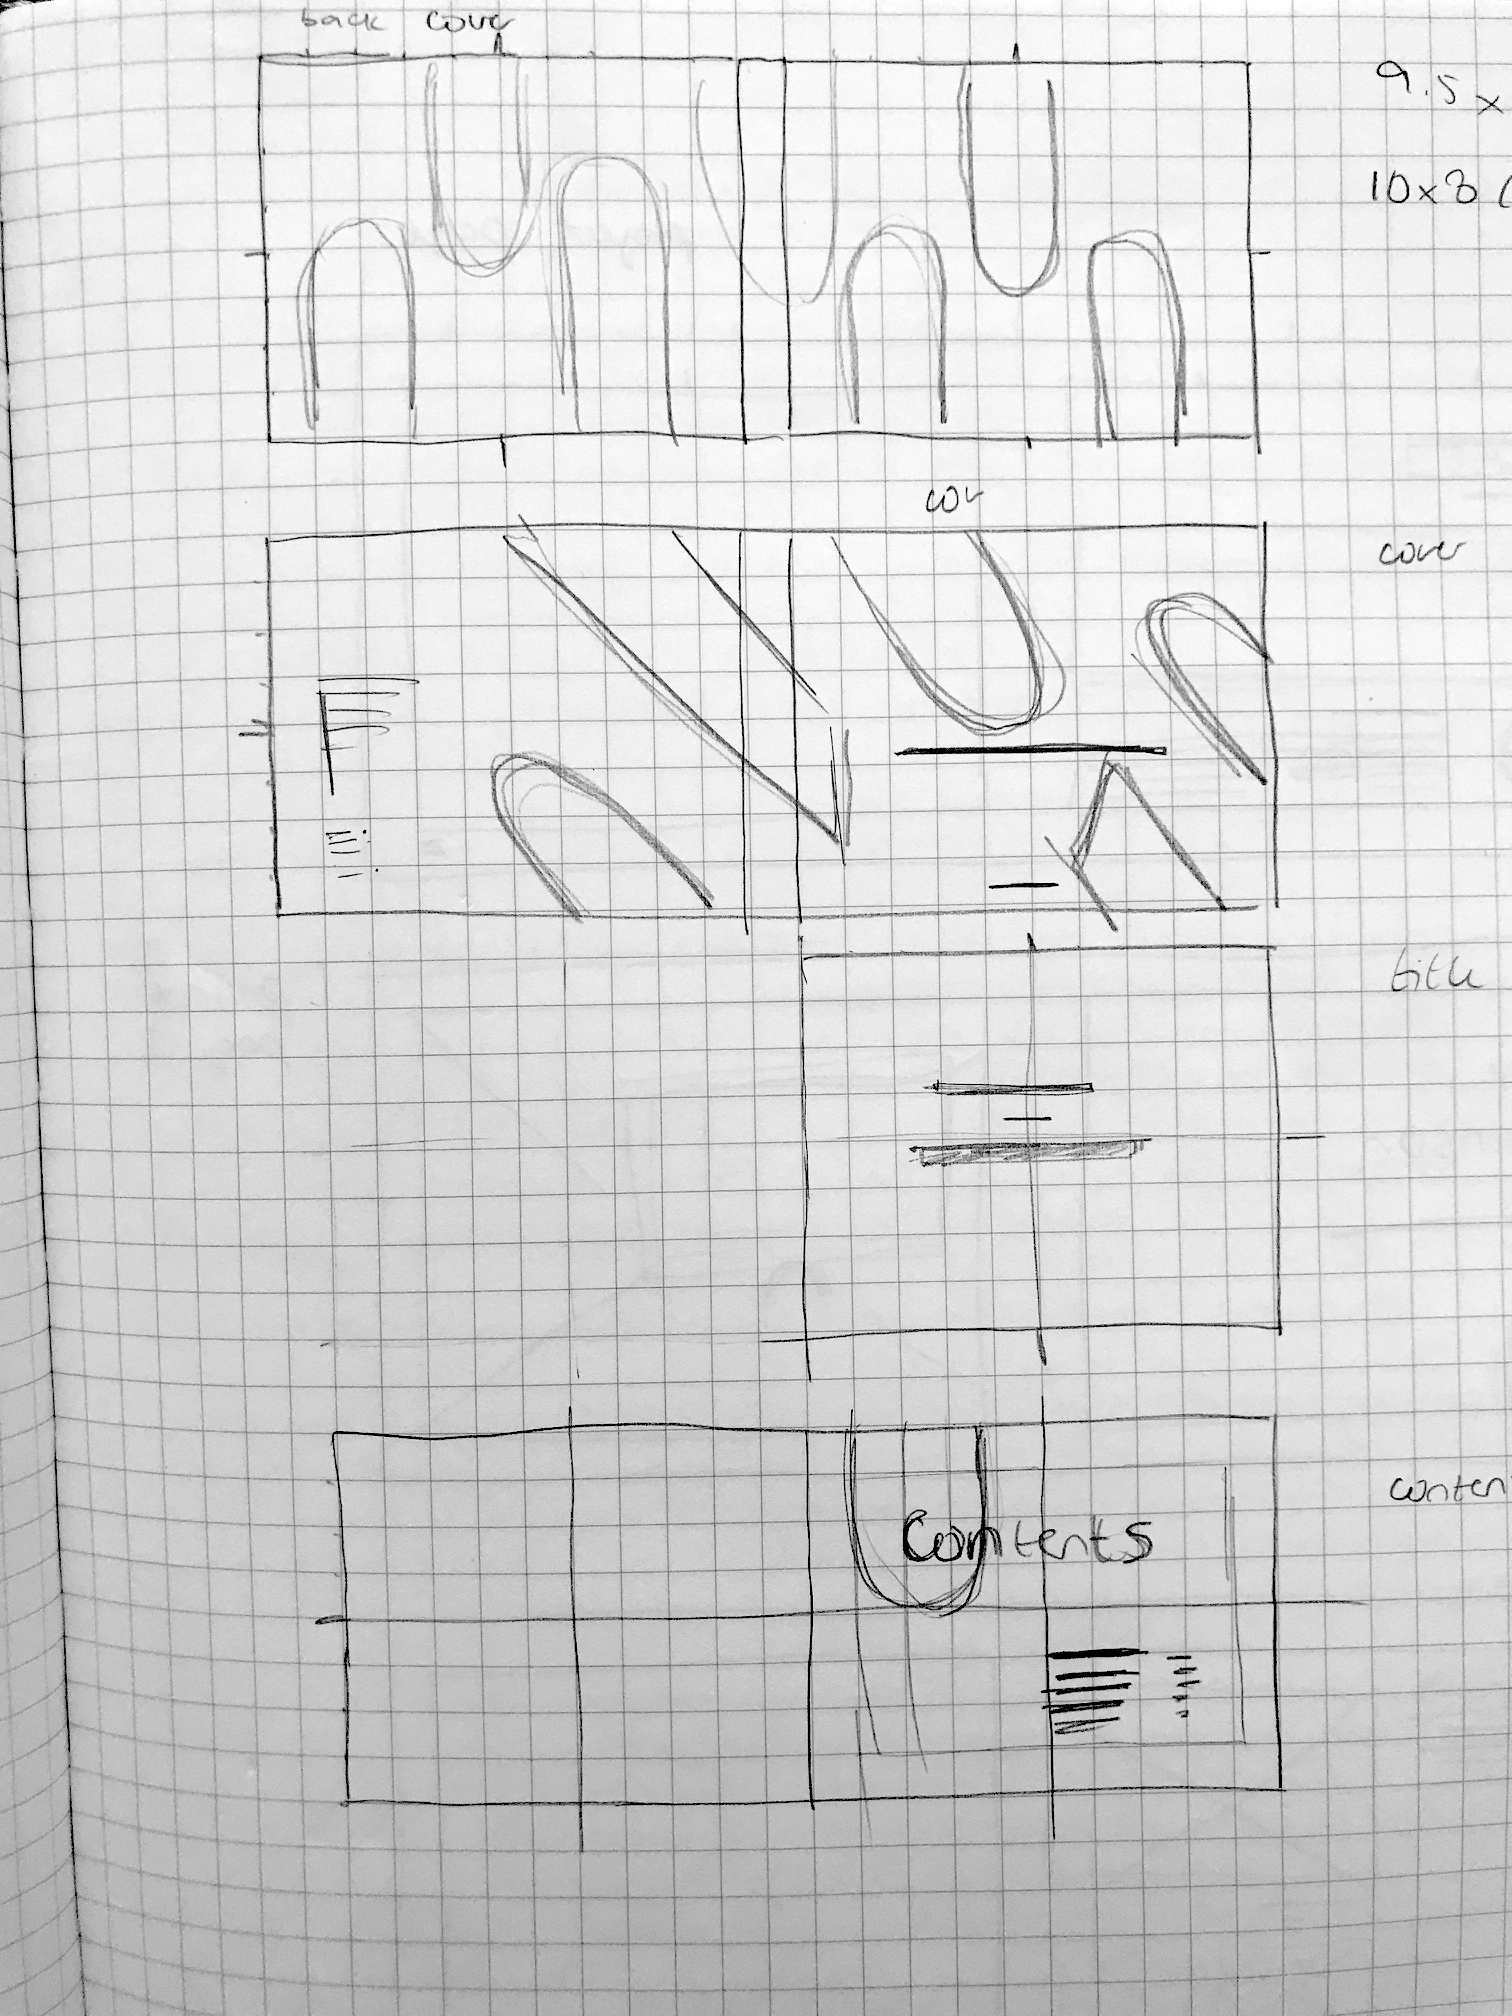 back cover
9.5 x
10x8 (
cov
cover
title
Contents
conten